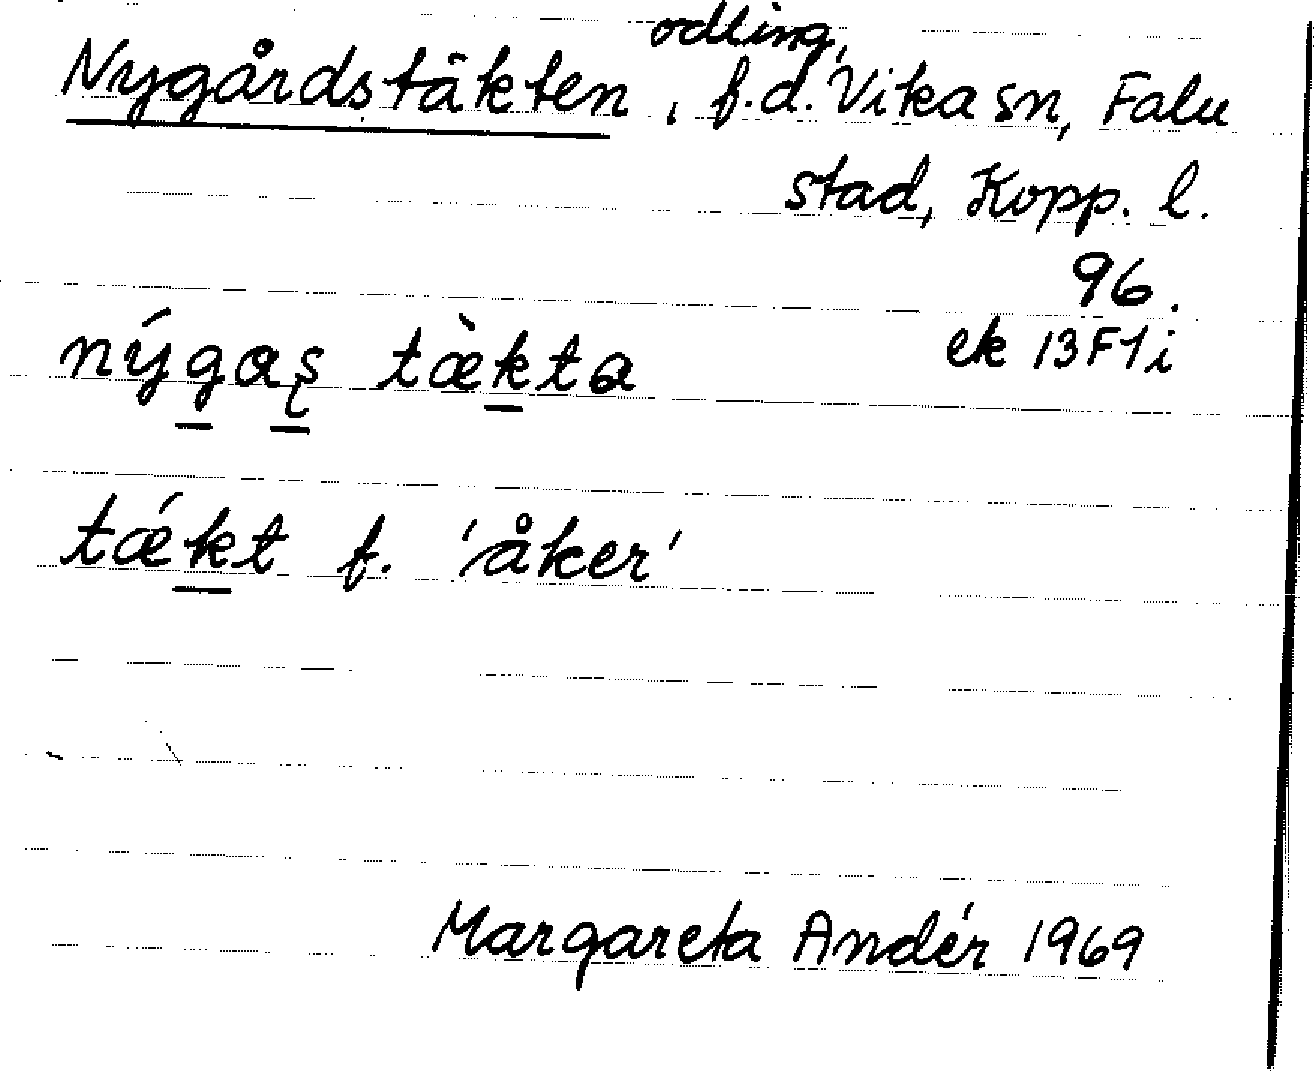 odling,
Nygårdstäkten, f.d. Vika sn, Falu
stad, Kopp. l.
96.
ek 13F1i
nýgaş tæ̀kta
tǽkt f. 'åker'
Margareta Andér 1969